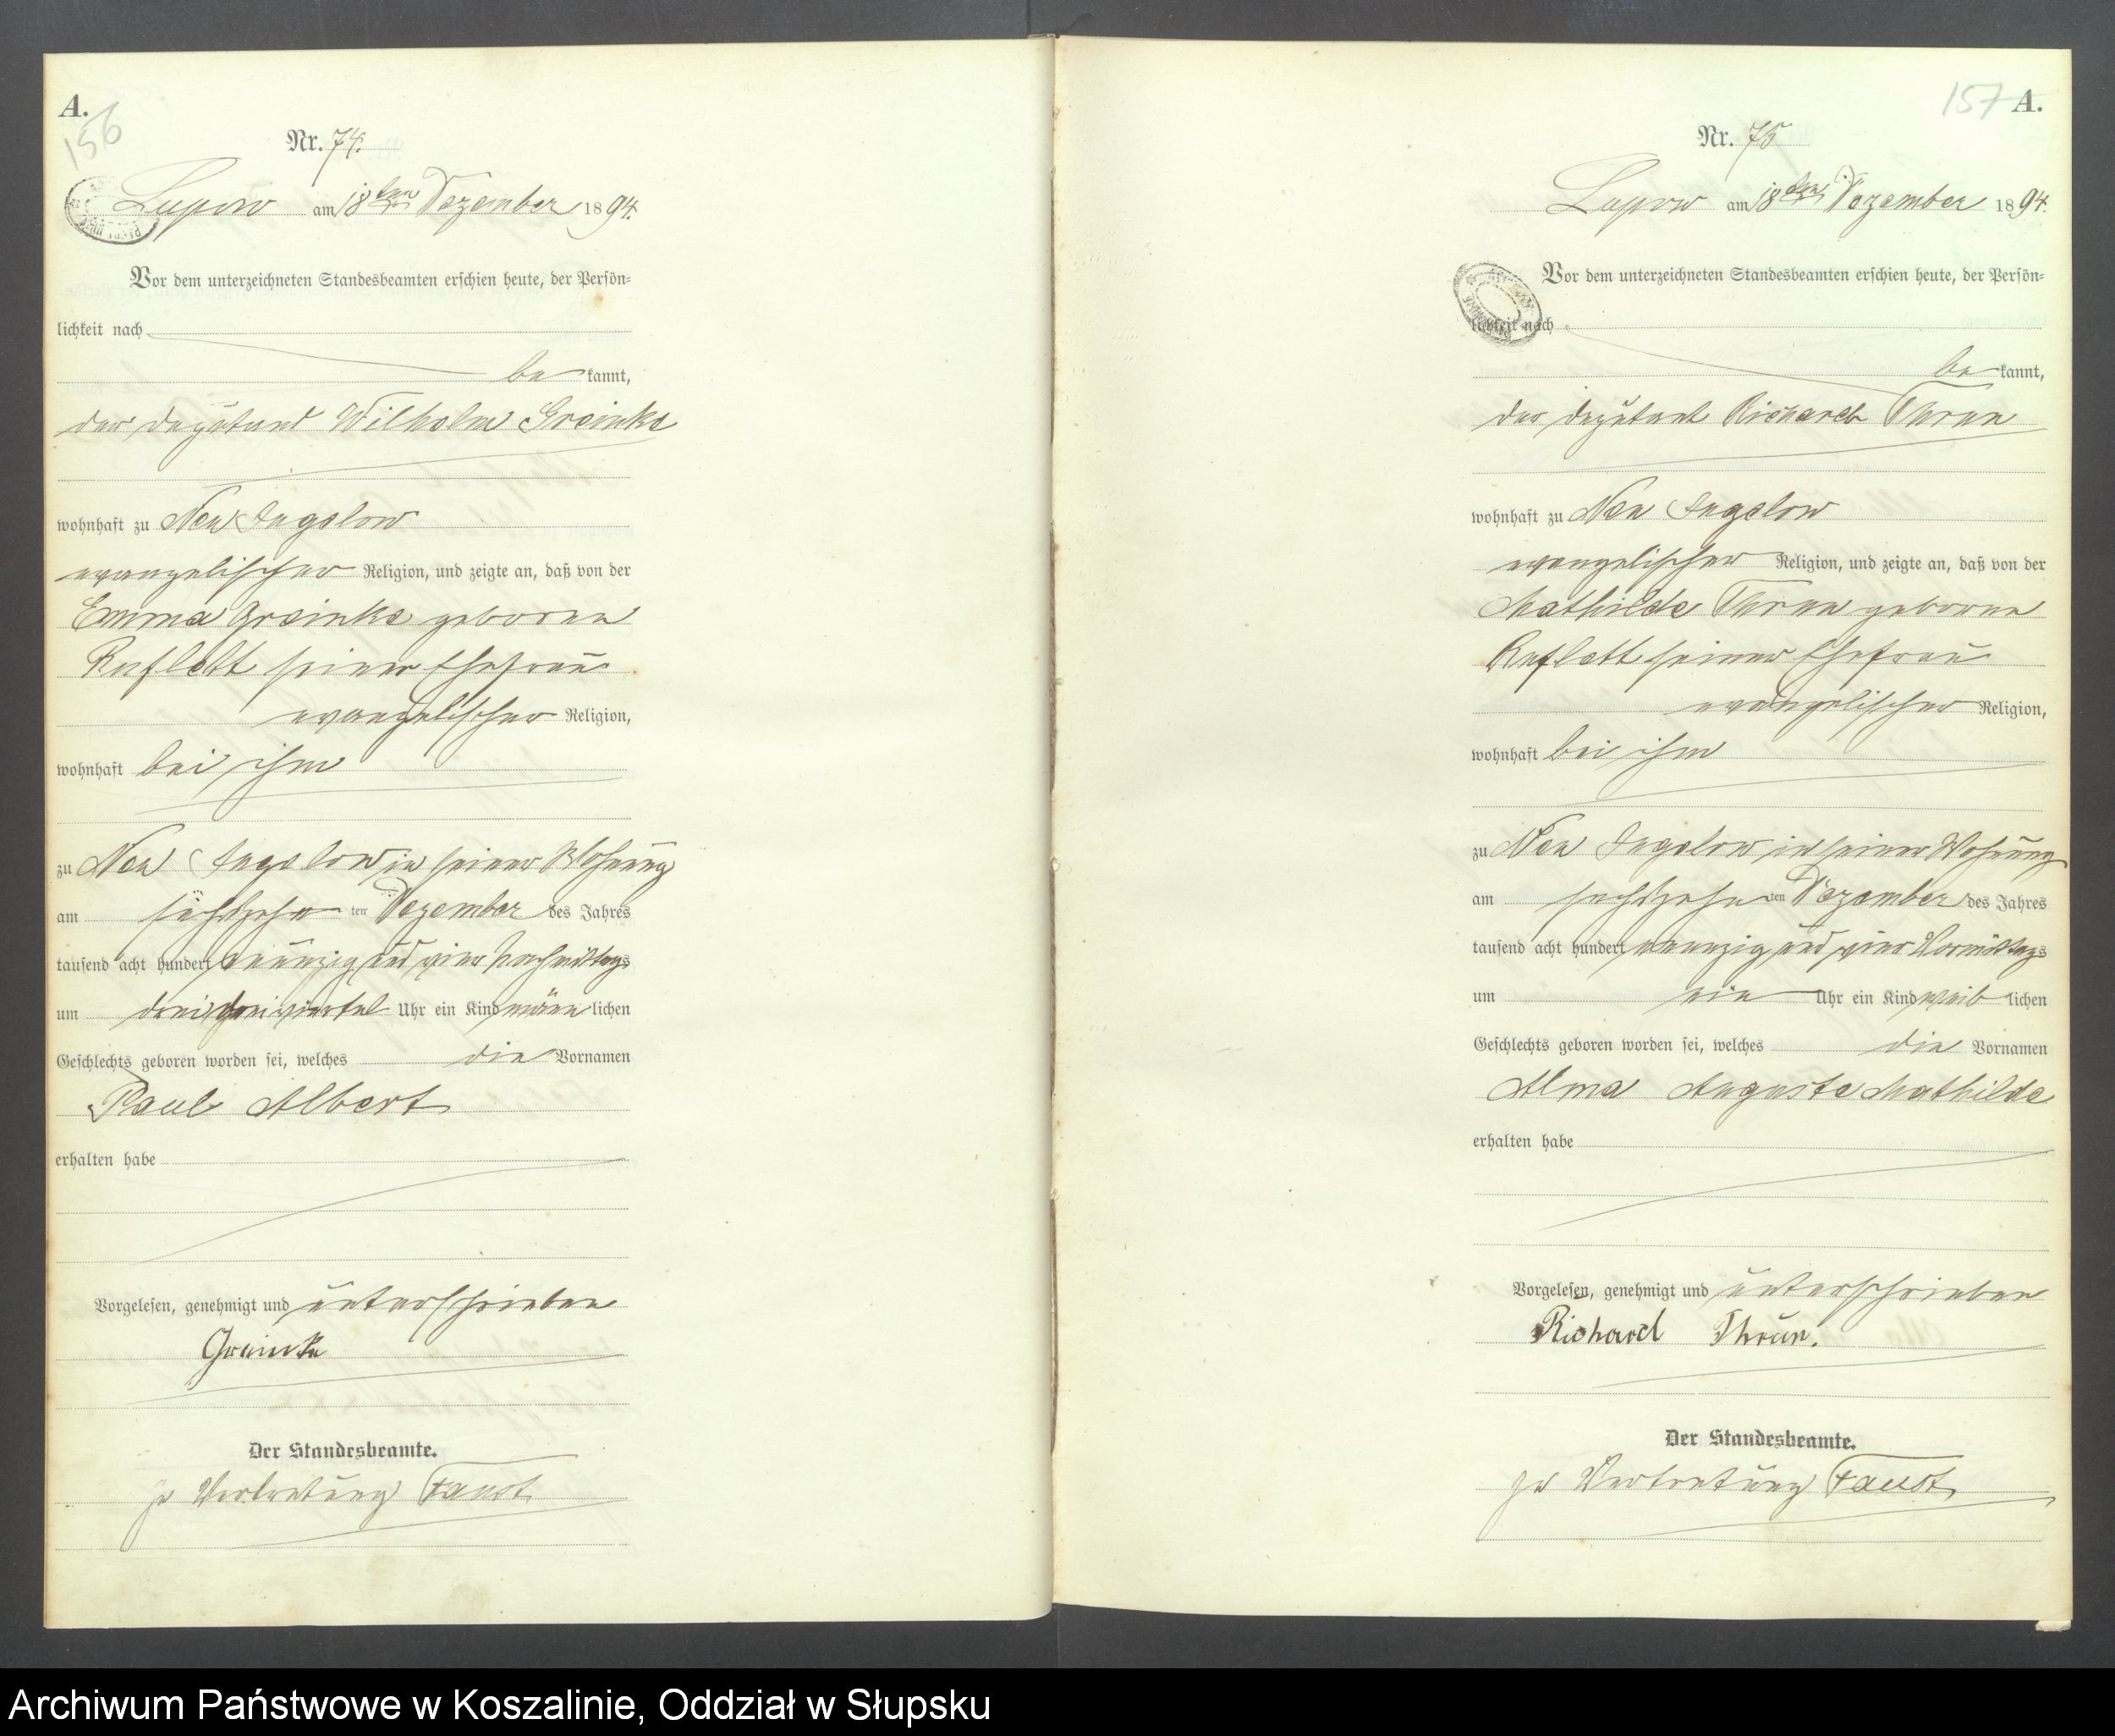 A.
156
Nr. 74.
Lupow am 18ten Dezember 1894.
Vor dem unterzeichneten Standesbeamten erschien heute, der Persön=
lichkeit nach
be kannt,
der Deputant Wilhelm Greinke
wohnhaft zu Neu Jugelow
evangelischer Religion, und zeigte an, daß von der
Emma Greinke geborene
seiner Ehefrau
evangelischer Religion,
wohnhaft bei ihm
zu Neu Jugelow in seiner Wohnung
am sechszehn ten Dezember des Jahres
tausend acht hundert neunzig und vier Nachmittags
um drei dreiviertel Uhr ein Kind männ lichen
Geschlechts geboren worden sei, welches die Vornamen
Paul Albert
erhalten habe
Vorgelesen, genehmigt und unterschrieben
Greinke
Der Standesbeamte.
In Vertretung Faust
157 A.
Nr. 75
Lupow am 18ten Dezember 1894.
Vor dem unterzeichneten Standesbeamten erschien heute, der Persön=
lichkeit nach
be kannt,
der Deputant Richard Thrun
wohnhaft zu Neu Jugelow
evangelischer Religion, und zeigte an, daß von der
Mathilde Thrun geborene
seiner Ehefrau
evangelischer Religion,
wohnhaft bei ihm
zu Neu Jugelow in seiner Wohnung
am sechszehn ten Dezember des Jahres
tausend acht hundert neunzig und vier Vormittags
um ein Uhr ein Kind weib lichen
Geschlechts geboren worden sei, welches die Vornamen
Alma Auguste Mathilde
erhalten habe
Vorgelesen, genehmigt und unterschrieben
Richard Thrun.
Der Standesbeamte.
In Vertretung Faust
Archiwum Państwowe w Koszalinie, Oddział w Słupsku